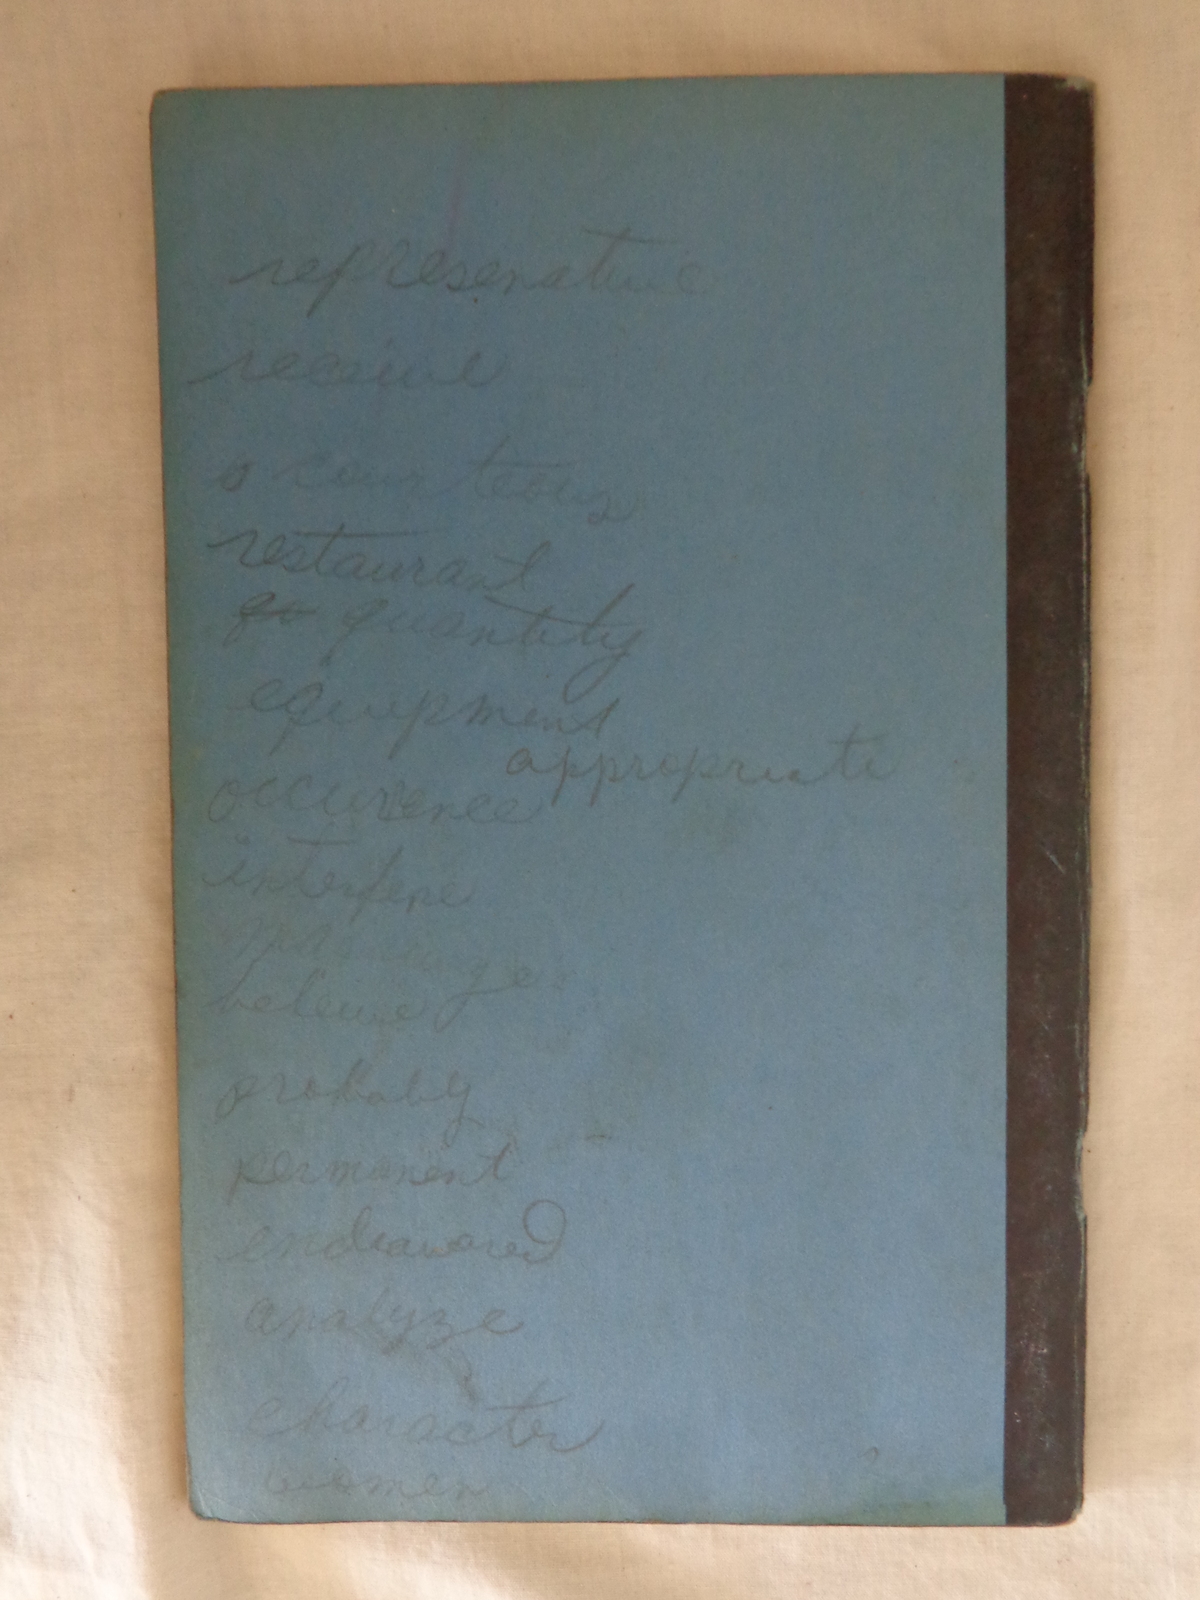 represenative
receive
o courteous
restaurant
qu quantity
equipment
appropriate
occurence
interfere
believe
probably
permanent
endeavored
analyze
character
women